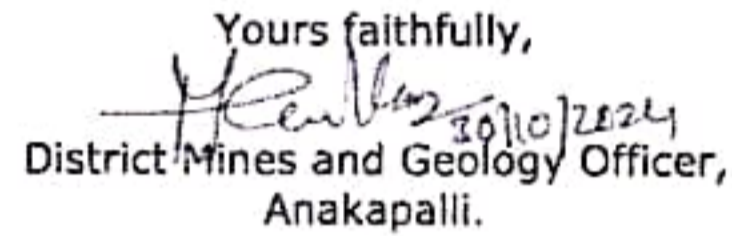 Yours faithfully,
30/10/2024
District Mines and Geology Officer,
Anakapalli.